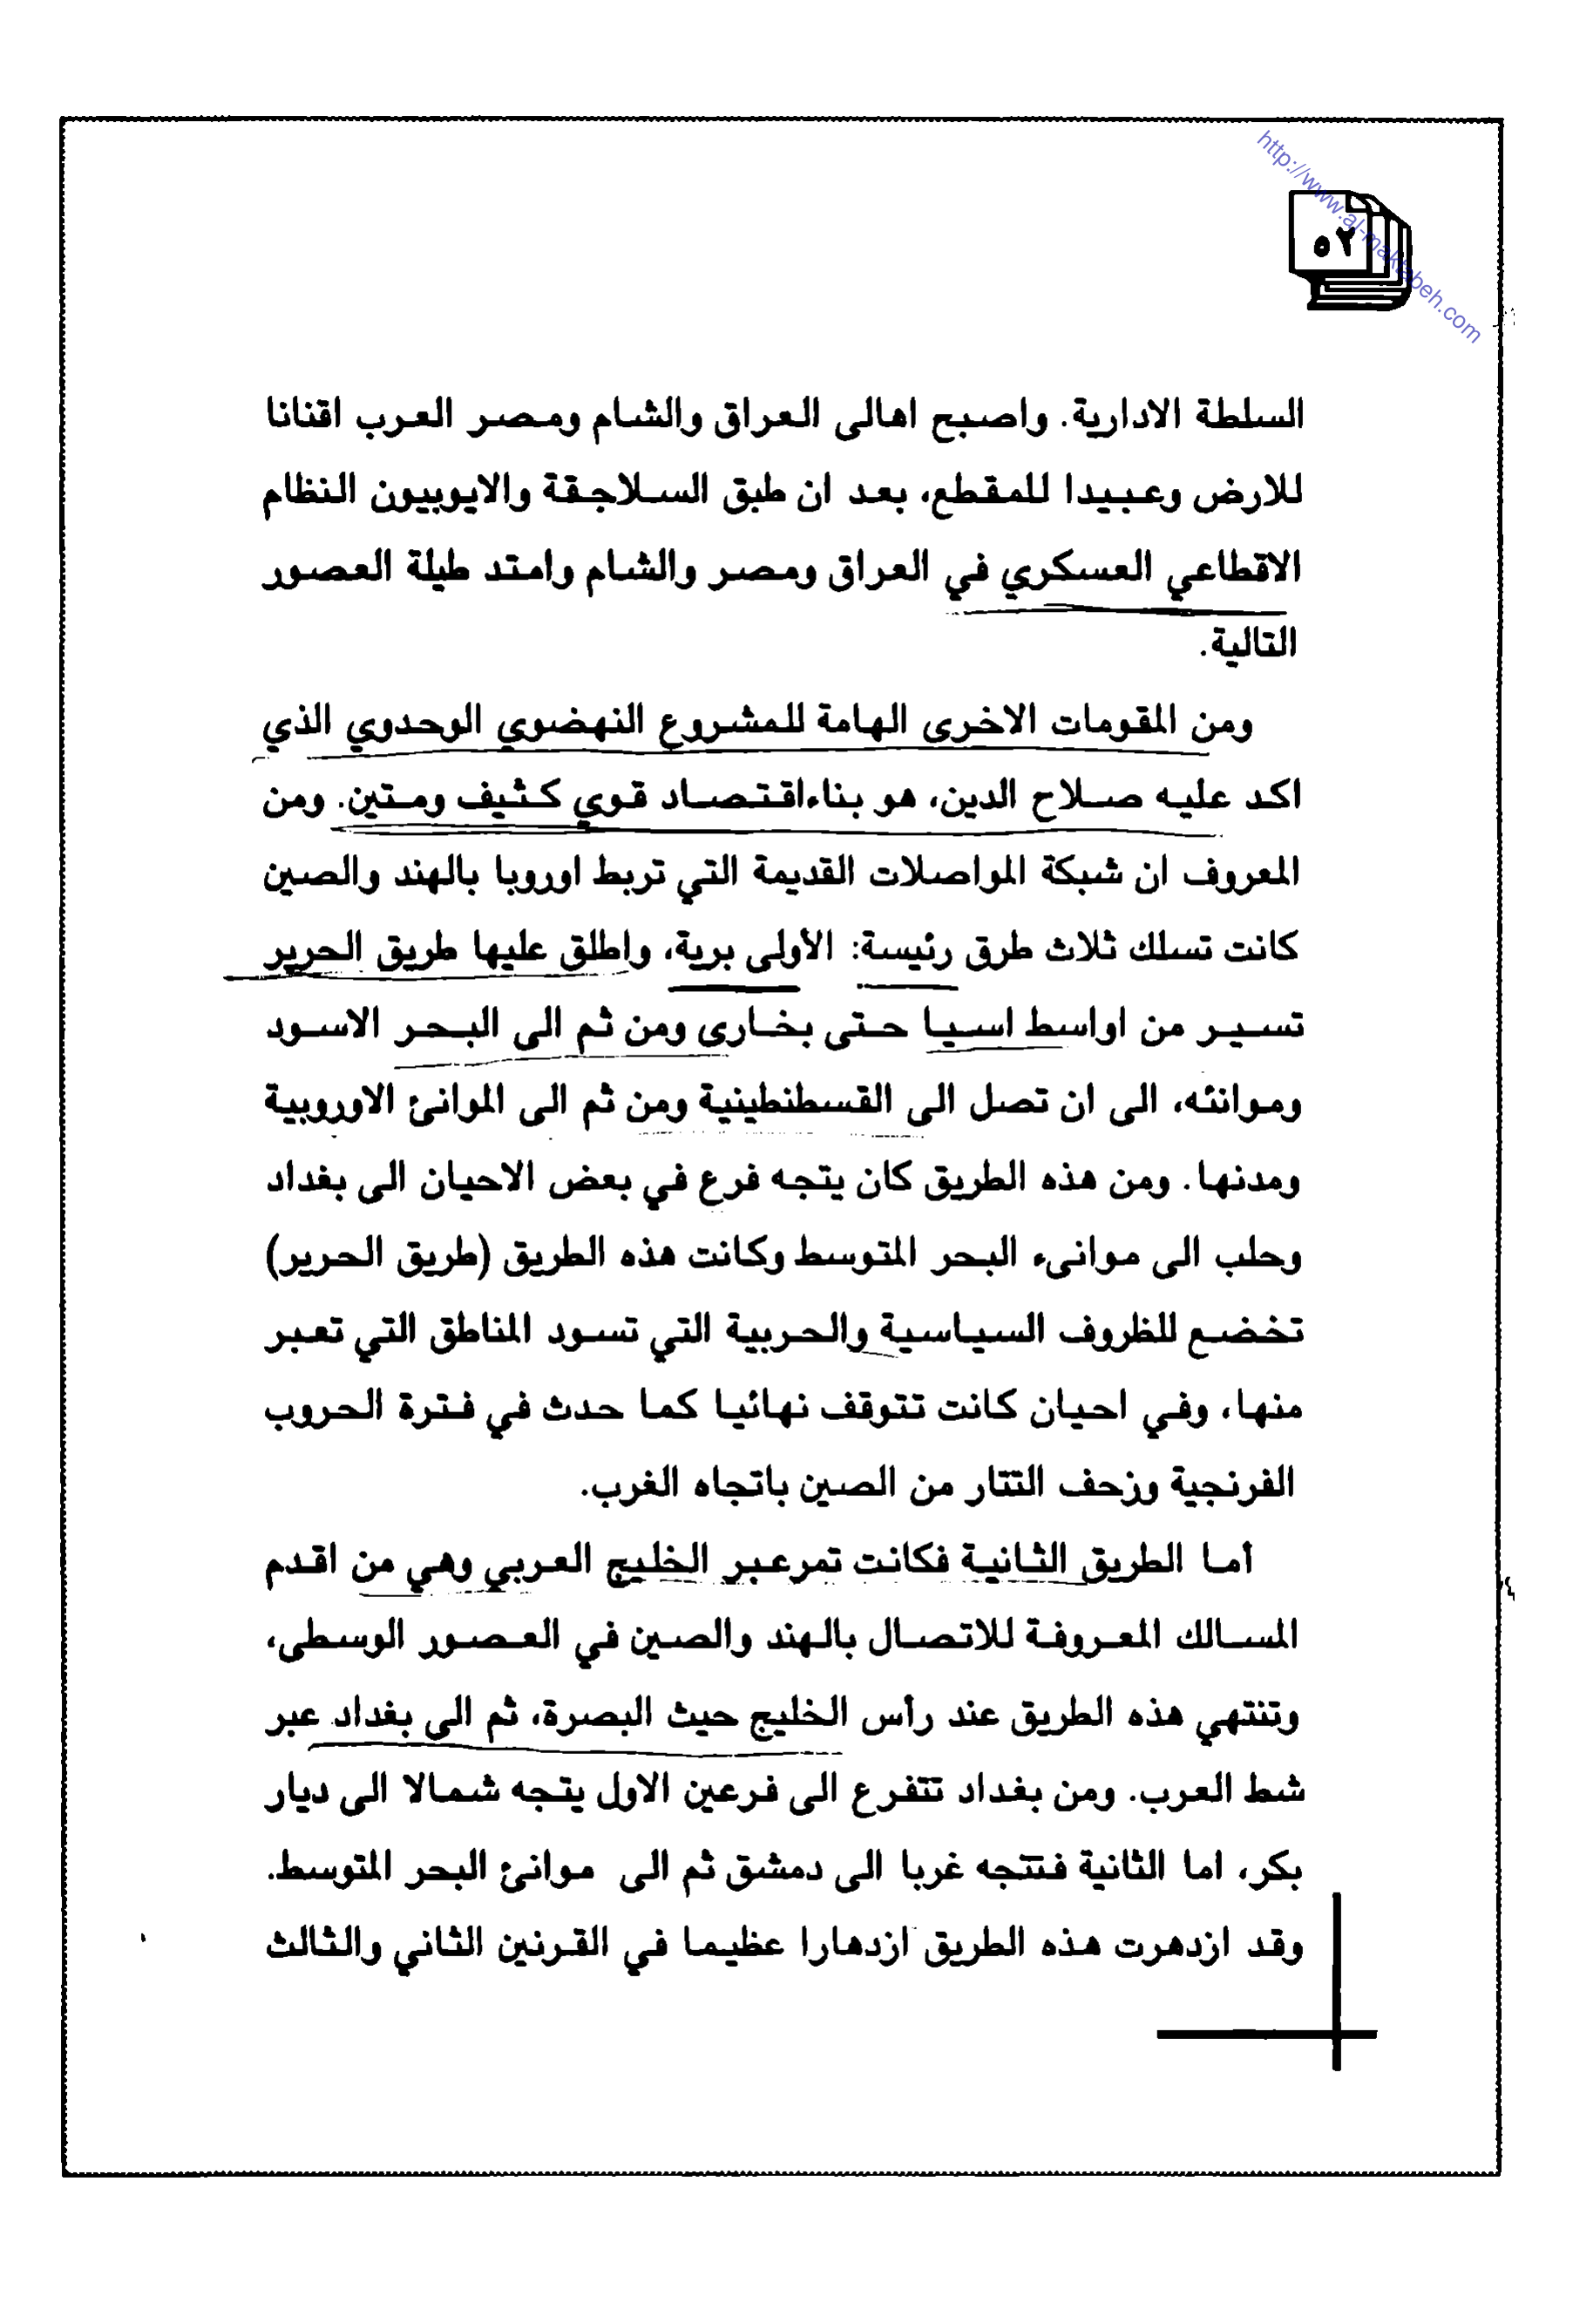 http://www.al-maktabeh.com
٥٢
السلطة الادارية. واصبح اهالى العراق والشام ومصر العرب اقنانا
للارض وعبيدا للمقطع، بعد ان طبق السلاجقة والايوبيون النظام
الاقطاعي العسكري في العراق ومصر والشام وامتد طيلة العصور
التالية.
ومن المقومات الاخرى الهامة للمشروع النهضوي الوحدوي الذي
اكد عليه صلاح الدين، هو بناءاقتصاد قوي كثيف ومتين. ومن
المعروف ان شبكة المواصلات القديمة التي تربط اوروبا بالهند والصين
كانت تسلك ثلاث طرق رئيسة: الأولى برية، واطلق عليها طريق الحرير
تسير من اواسط اسيا حتى بخارى ومن ثم الى البحر الاسود
وموانئه، الى ان تصل الى القسطنطينية ومن ثم الى الموانئ الاوروبية
ومدنها. ومن هذه الطريق كان يتجه فرع في بعض الاحيان الى بغداد
وحلب الى موانىء البحر المتوسط وكانت هذه الطريق (طريق الحرير)
تخضع للظروف السياسية والحربية التي تسود المناطق التي تعبر
منها، وفي احيان كانت تتوقف نهائيا كما حدث في فترة الحروب
الفرنجية وزحف التتار من الصين باتجاه الغرب.
أما الطريق الثانية فكانت تمرعبر الخليج العربي وهي من اقدم
المسالك المعروفة للاتصال بالهند والصين في العصور الوسطى،
وتنتهي هذه الطريق عند رأس الخليج حيث البصرة، ثم الى بغداد عبر
شط العرب. ومن بغداد تتفرع الى فرعين الاول يتجه شمالا الى ديار
بكر، اما الثانية فتتجه غربا الى دمشق ثم الى موانئ البحر المتوسط.
وقد ازدهرت هذه الطريق ازدهارا عظيما في القرنين الثاني والثالث